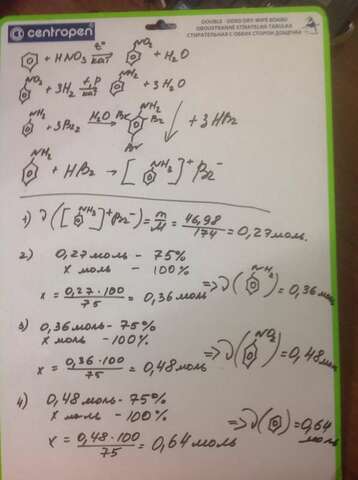 centropen
DOUBLE-SIDED DRY-WIPE BOARD
OBOUSTRANNĚ STÍRATELNÁ TABULKA
СТИРАТЕЛЬНАЯ С ОБЕИХ СТОРОН ДОЩЕЧКА
+ HNO3 t° кат NO2 + H2O
NO2 + 3H2 t, p кат NH2 + 3H2O
NH2 + 3Br2 H2O → Br NH2 Br Br ↓ + 3HBr
NH2 + HBr → [ NH2 ]+ Br-
1) ν([ NH2 ]+ Br-) = m/M = 46,98/174 = 0,27 моль.
2) 0,27 моль - 75%
x моль - 100%
x = 0,27·100/75 = 0,36 моль => ν( NH2 ) = 0,36 моль
3) 0,36 моль - 75%
x моль - 100%
x = 0,36·100/75 = 0,48 моль => ν( NO2 ) = 0,48 моль
4) 0,48 моль - 75%
x моль - 100%
x = 0,48·100/75 = 0,64 моль => ν( ) = 0,64 моль